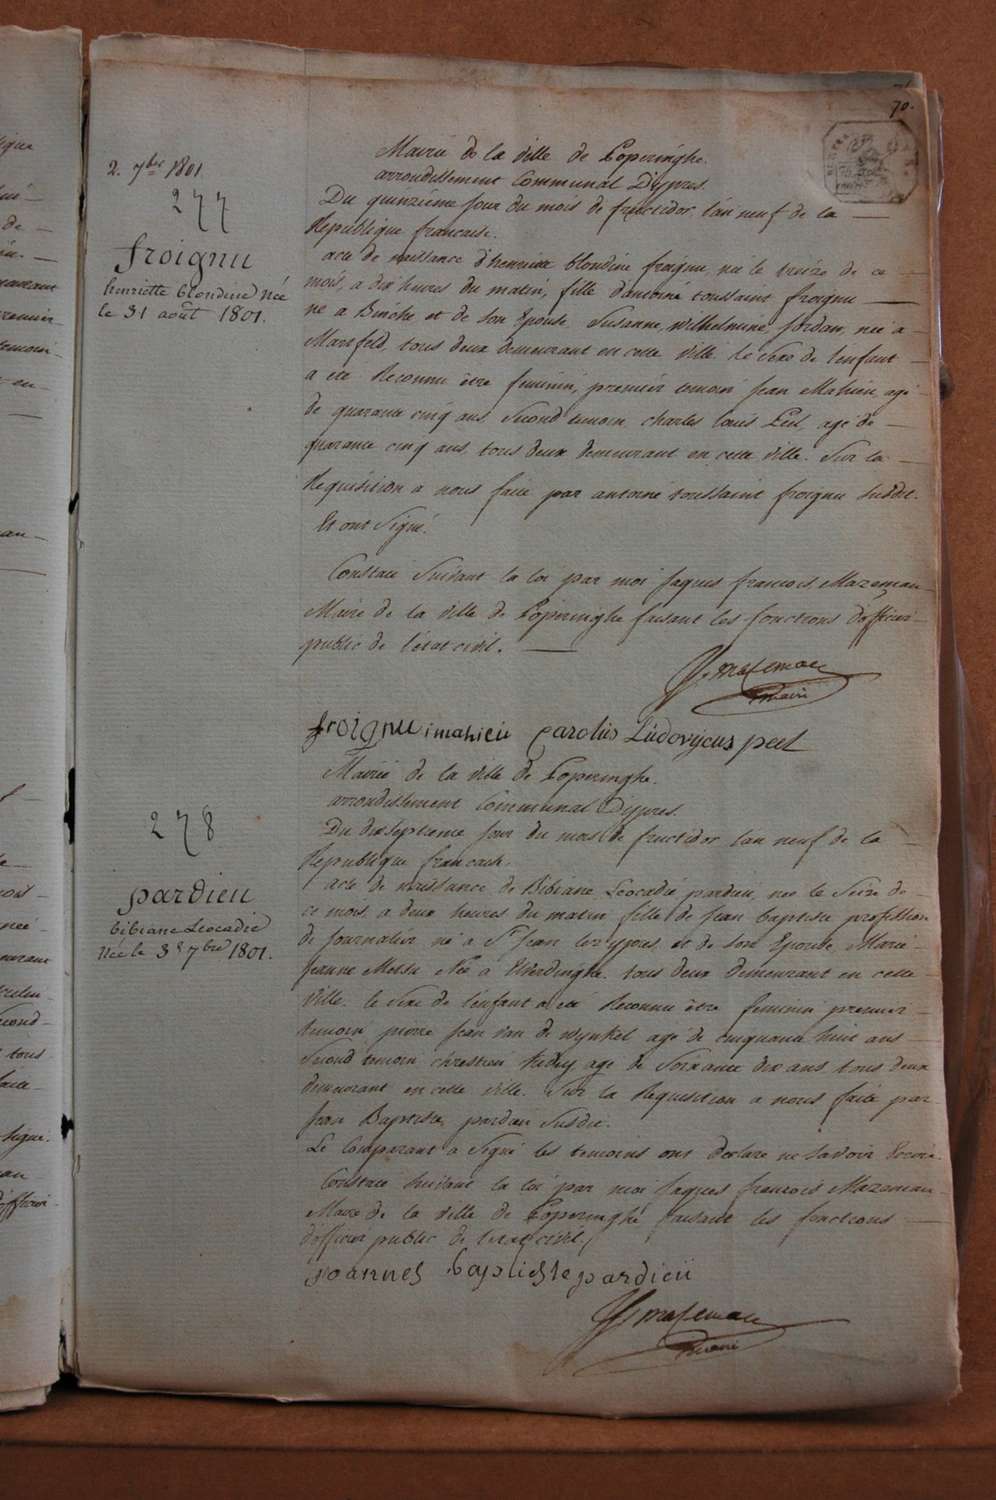 70.
2. 7bre 1801
277
froignu
henriette blondine Née
le 31 août 1801.
Mairie de la ville de Poperinghe.
arrondissement Communal D'ypres.
Du quinzieme jour du mois de fructidor l'an neuf de la
Republique francaise.
acte de naissance d'henriette blondine froignu, née le treize de ce
mois, a dix heures du matin, fille d'antoine toussaint froignu
né a Binche et de son Epouse, Susanne Wilhelmine Jordan, née a
Marsfeld, tous deux demeurant en cette ville. le sexe de l'enfant
a été Reconnu être feminin, premier temoin Jean Mahieu, agé
de quarante cinq ans, Second temoin, charles louis Peel, agé de
quarante cinq ans, tous deux demeurant en cette ville. Sur la
Requisition a nous faite par antoine toussaint froignu Susdit.
Et ont Signé.
Constaté Suivant la loi par moi Jaques francois Mazeman
Maire de la ville de Poperinghe faisant les fonctions d'officier
public de l'état civil.
J. mazeman
maire
froignu i mahieu carolus Ludovycus peel
278
pardieu
bibiane Leocadie
Née le 3e 7bre 1801.
Mairie de la ville de Poperinghe.
arrondissement Communal D'ypres.
Du dixseptieme jour du mois de fructidor l'an neuf de la
Republique francaise.
acte de naissance de Bibiane Leocadie pardieu, née le Seize de
ce mois a deux heures du matin fille de Jean baptiste profession
de Journalier né a St Jean lez ypres, et de son Epouse, Marie
Jeanne Née a Elverdinghe. tous deux demeurant en cette
ville. le Sexe de l'enfant a été Reconnu être feminin premier
temoin pierre Jean Van de Wynkel agé de cinquante huit ans
Second temoin chretien agé de Soixante dix ans, tous deux
demeurant en cette ville. Sur la Requisition a nous faite par
Jean Baptiste, pardieu Susdit.
Le Comparant a Signé les temoins ont declaré ne savoir Ecrire
Constaté Suivant la loi par moi Jaques francois Mazeman
Maire de la ville de Poperinghe faisant les fonctions
d'officier public de l'etat civil.
joannes baptiste pardieu
J mazeman
maire